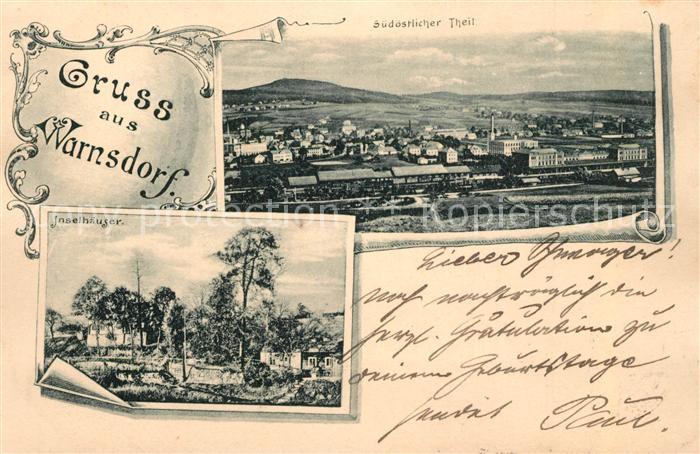 Südöstlicher Theil.
Gruss
aus
Warnsdorf.
Inselhäuser.
copy protection & Kopierschutz
Lieber !
noch nachträglich die
herzl. Gratulation zu
deinem Geburtstage
sendet Paul.